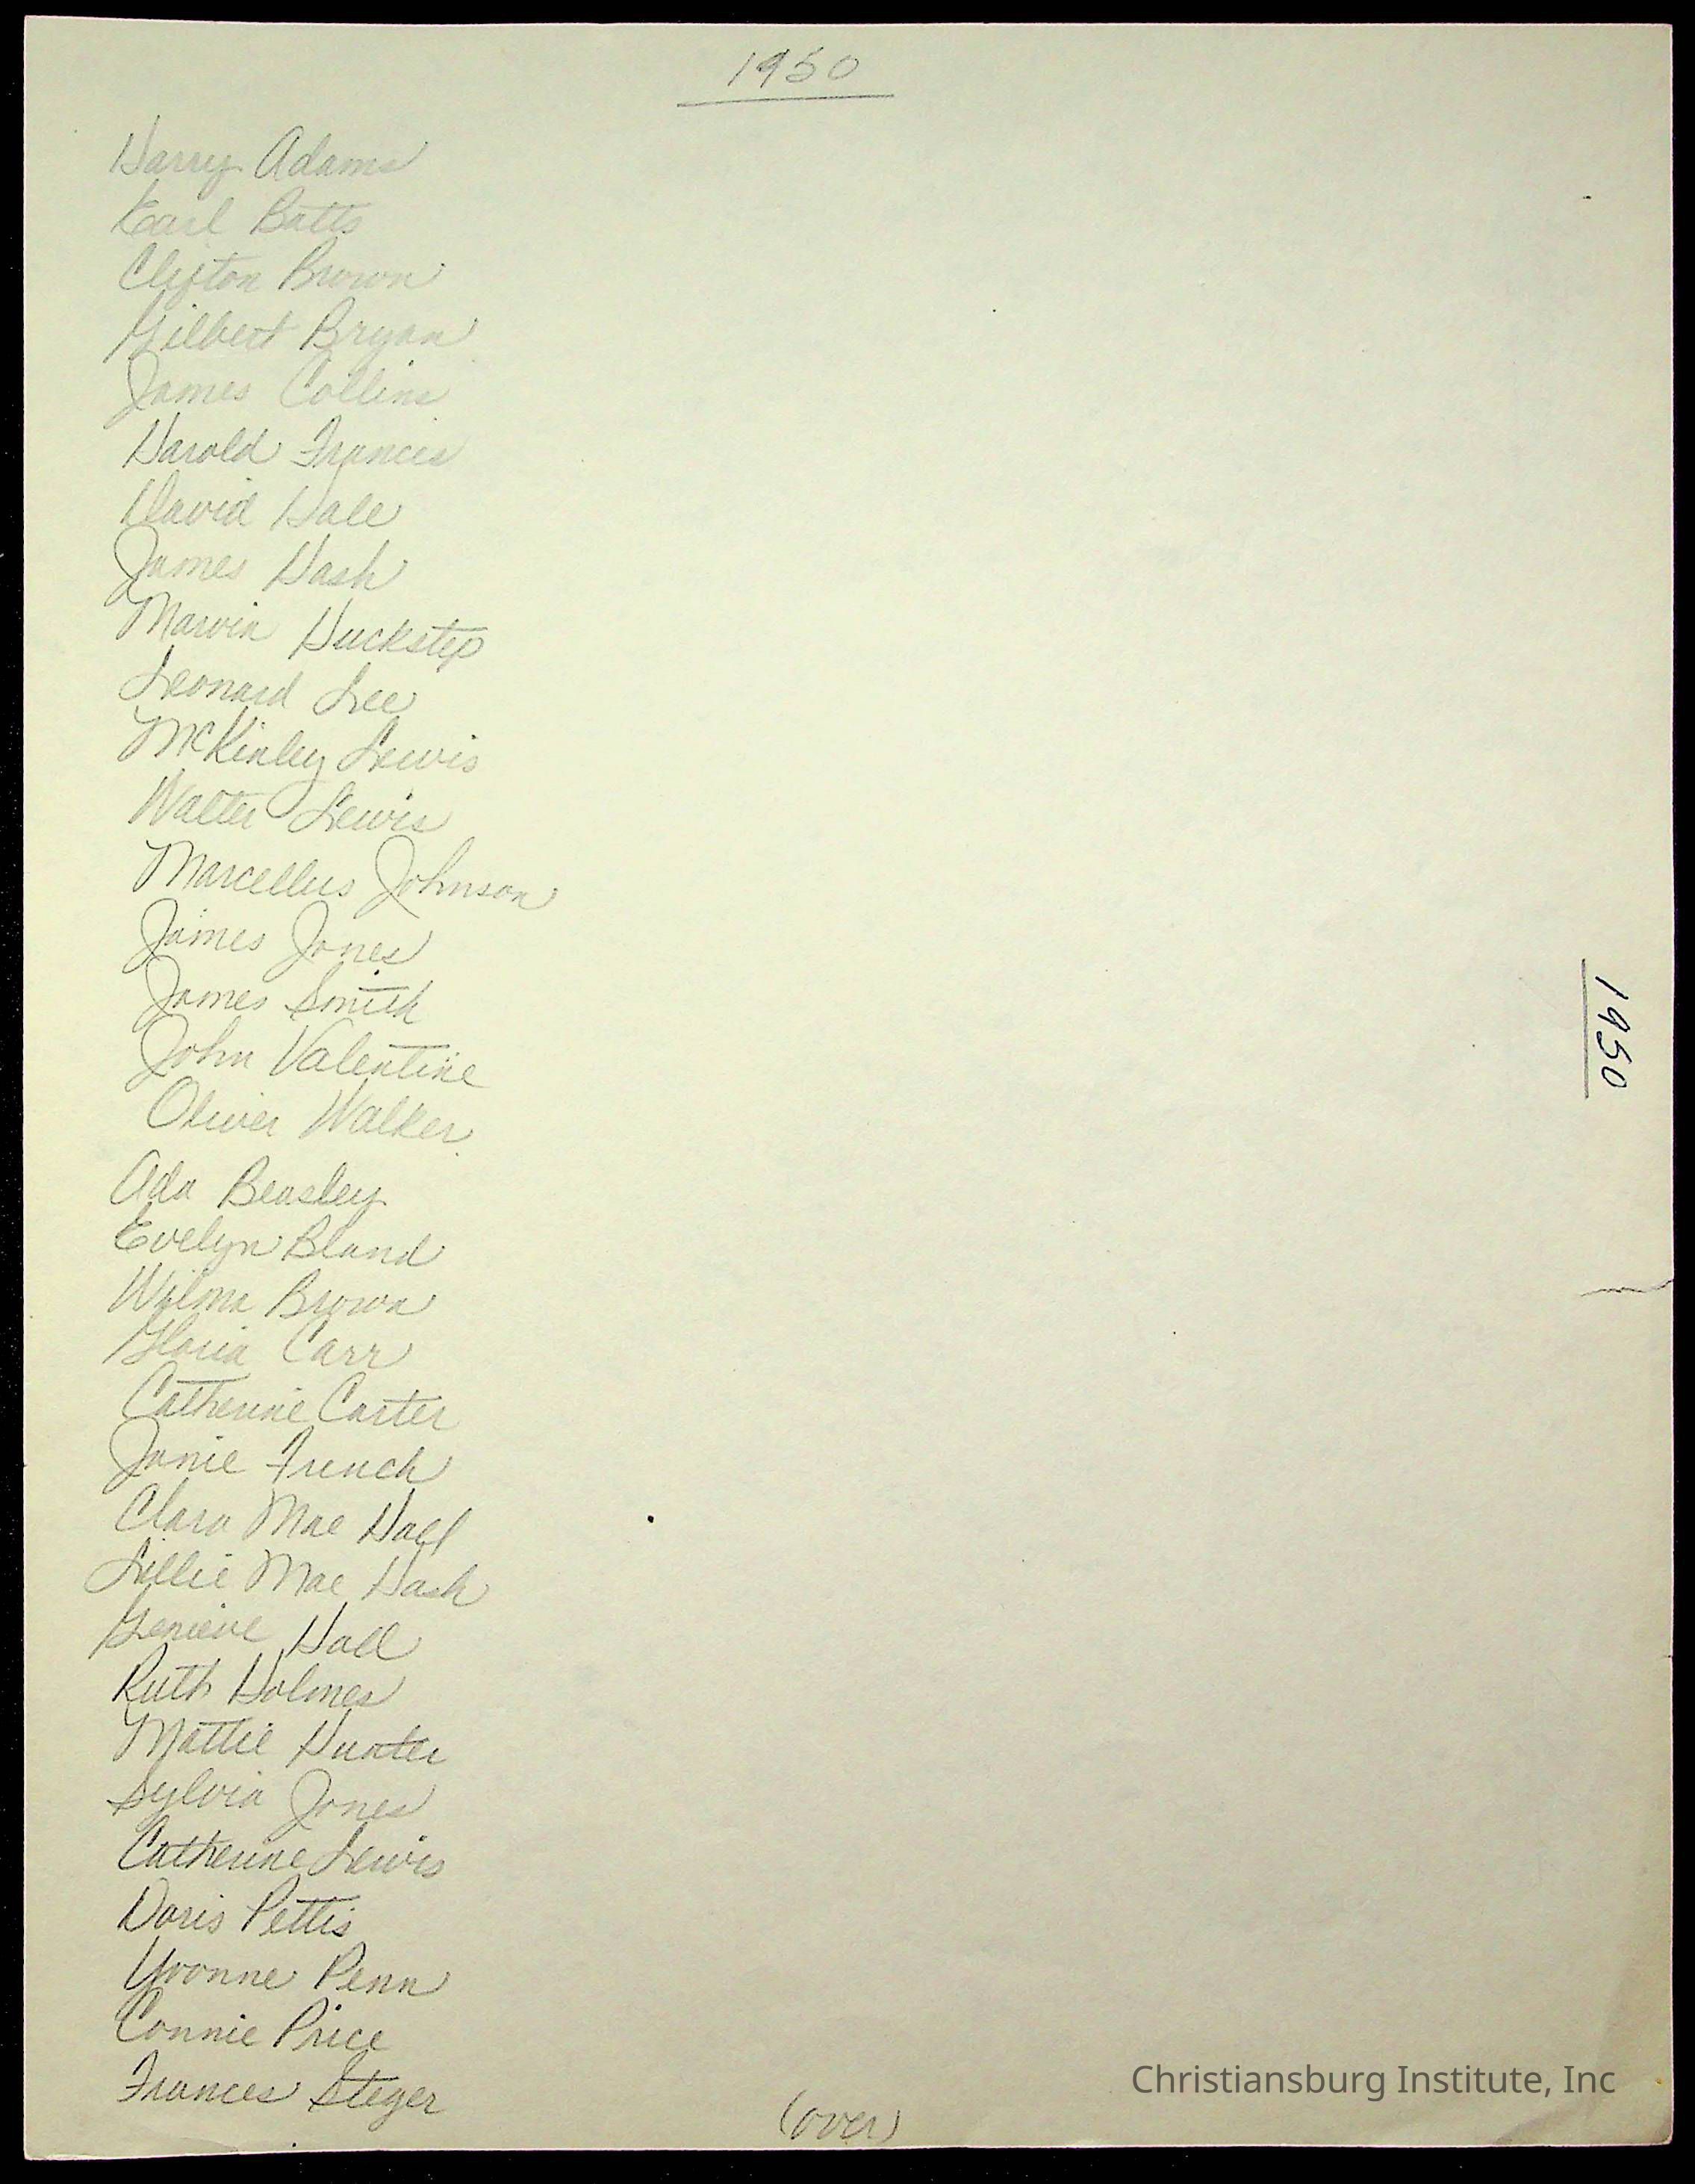 1950
Harry Adams
Earl Batts
Clifton Brown
Gilbert Bryan
James Collins
Harold Francis
David Hale
James Hash
Marvin Huckstep
Leonard Lee
McKinley Lewis
Walter Lewis
Marcellus Johnson
James Jones
James Smith
John Valentine
Oliver Walker
Ada Beasley
Evelyn Bland
Wilma Brown
Gloria Carr
Catherine Carter
Janie French
Clara Mae Hall
Lillie Mae Hash
Genieve Hall
Ruth Holmes
Mattie Hunter
Sylvia Jones
Catherine Lewis
Doris Pettis
Yvonne Penn
Connie Price
Frances Steger
(over)
1950
Christiansburg Institute, Inc